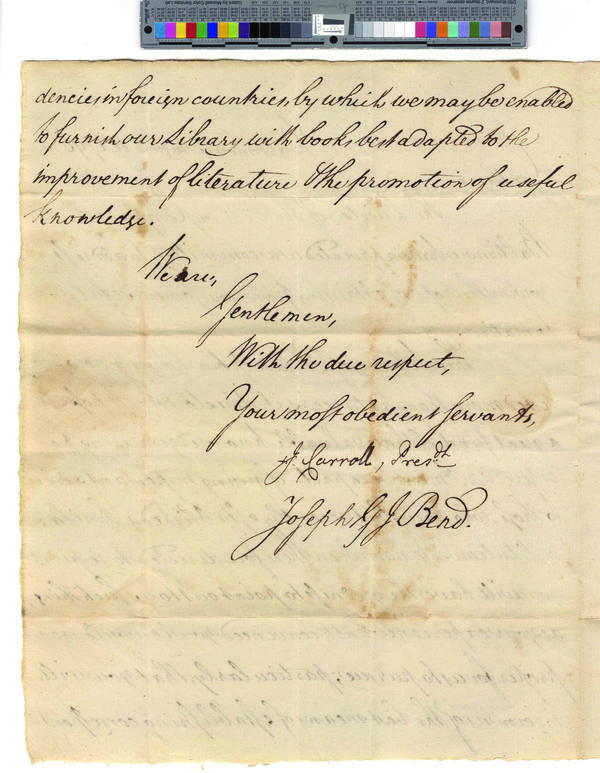 dencies in foreign countries, by which we may be enabled
to furnish our Library with books best adapted to the
improvement of literature & the promotion of useful
knowledge.
We are,
Gentlemen,
With the due respect,
Your most obedient servants,
J. Carroll, Presdt
Joseph G J Bend.